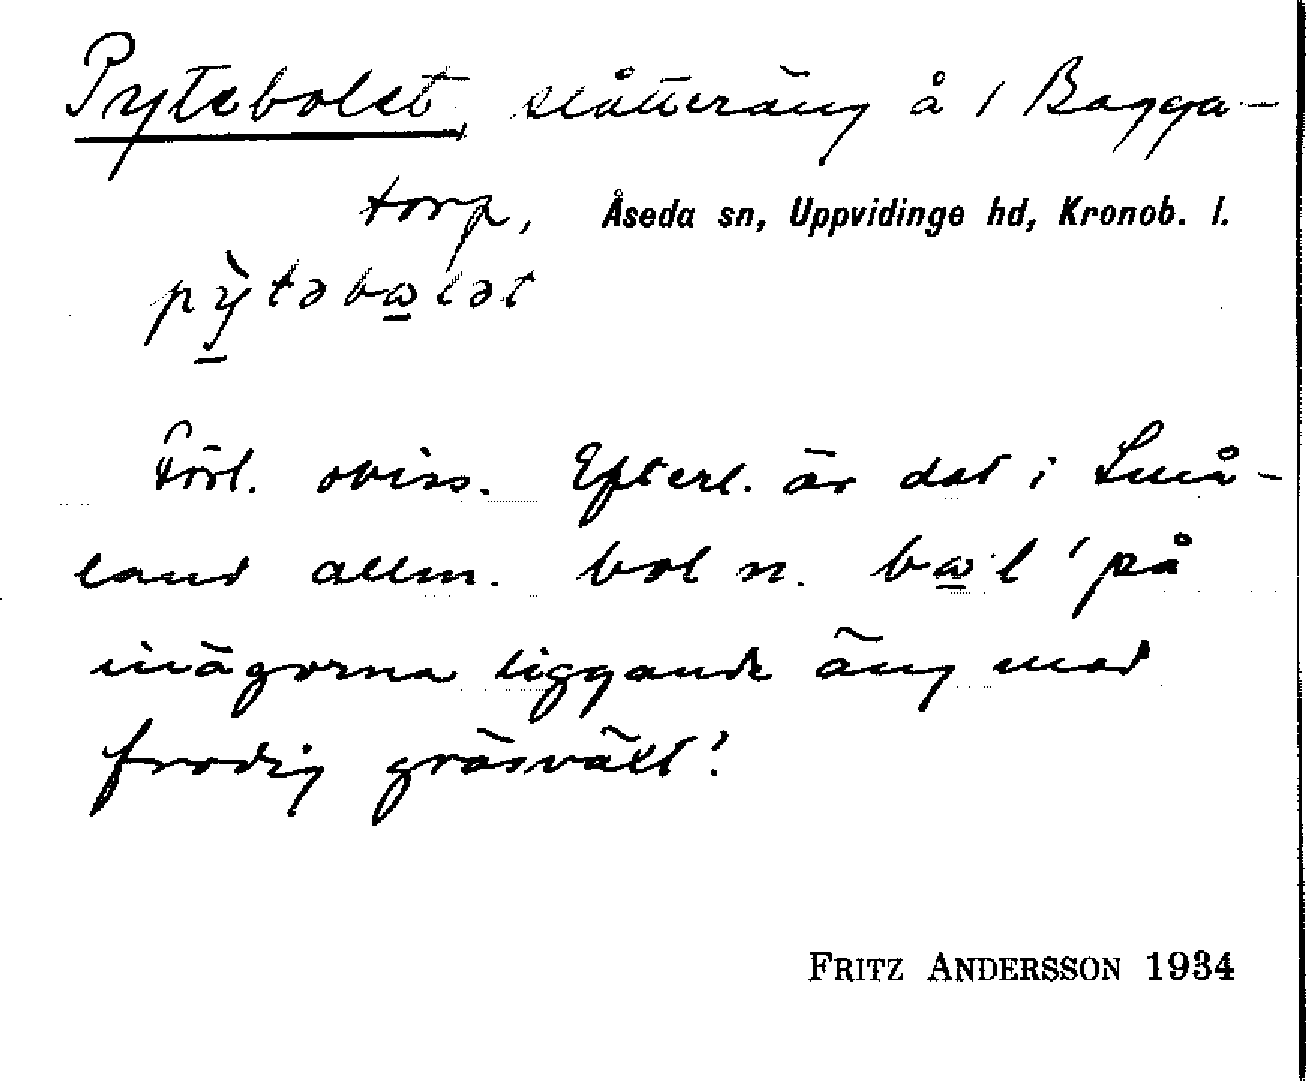 Pytebolet, slåtteräng å 1 Bagga-
torp, Åseda sn, Uppvidinge hd, Kronob. l.
pỳtəbωlət
Förl. oviss. Efterl. är det i Små-
land allm. bol n. bω·l 'på
inägorna liggande äng med
frodig gräsvält'.
FRITZ ANDERSSON 1934